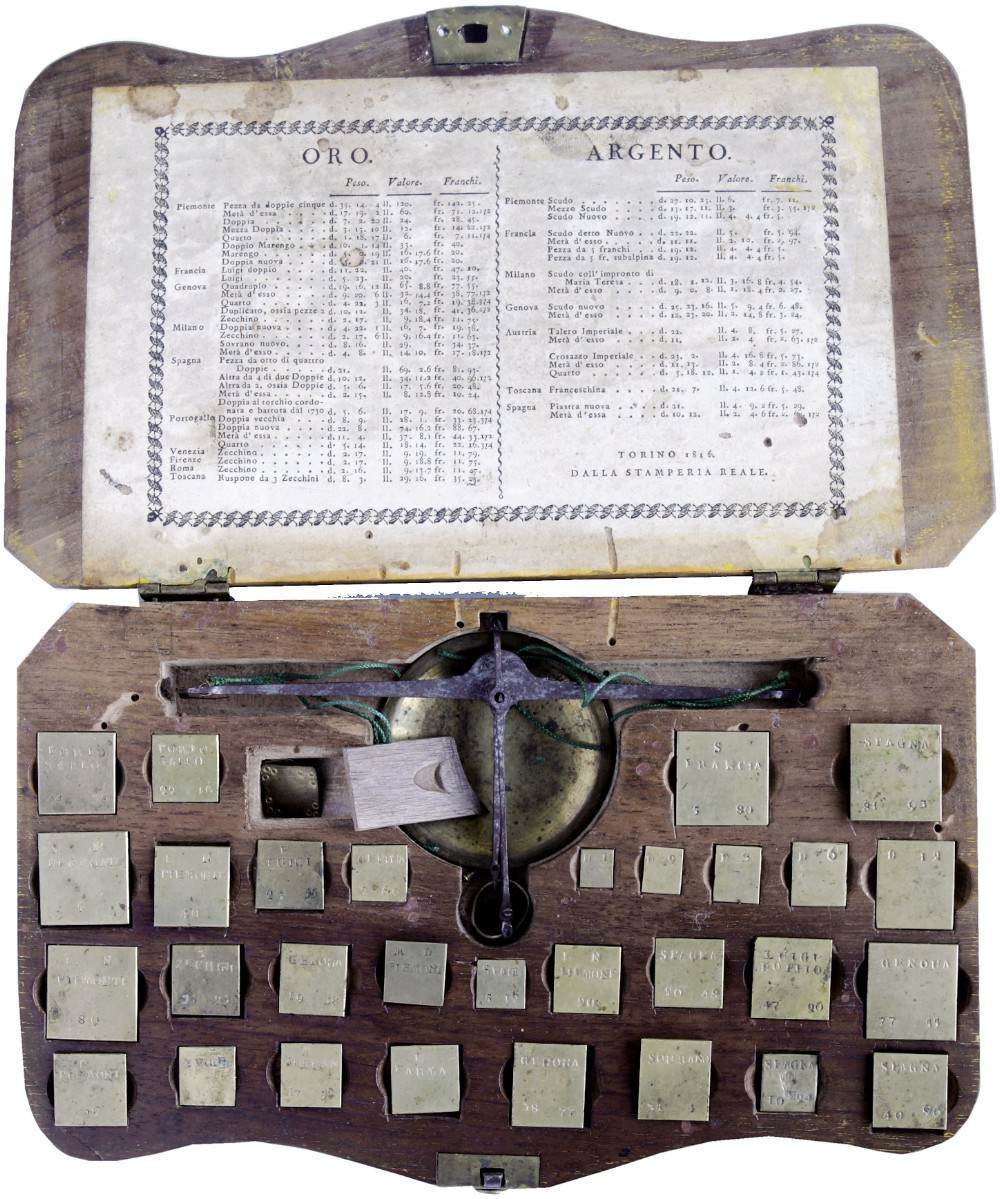 ORO.
Peso. Valore. Franchi.
Piemonte Pezza da doppie cinque d. 35. 14. 4 ll. 120. fr. 142. 25.
Metà d'essa d. 17. 19. 2 ll. 60. fr. 71. 12.1/2
Doppia d. 7. 2. 20 ll. 24. fr. 28. 45.
Mezza Doppia d. 3. 13. 10 ll. 12. fr. 14. 22.1/2
Quarto d. 1. 18. 17 ll. 6. fr. 7. 11.1/4
Doppio Marengo ll. 33. fr. 40.
Marengo ll. 16. 17.6 fr. 20.
Doppia nuova ll. 16. 17.6 fr. 20.
Francia Luigi doppio d. 11. 22. ll. 40. fr. 47. 20.
Luigi d. 5. 23. ll. 20. fr. 23. 55.
Genova Quadruplo d. 19. 16. 12 ll. 65. 8.8 fr. 77. 55.
Metà d'esso d. 9. 20. 6 ll. 32. 14.4 fr. 38. 77.1/2
Quarto d. 4. 22. 3 ll. 16. 7.2 fr. 19. 38.3/4
Duplicato, ossia pezze 2 d. 10. 12. ll. 34. 18. fr. 41. 36.
Zecchino d. 2. 17. ll. 9. 18.4 fr. 11. 75.
Milano Doppia nuova d. 4. 22. ll. 16. 7. fr. 19. 38.
Zecchino d. 2. 17. 6 ll. 9. 16.4 fr. 11. 63.
Sovrano nuovo d. 8. 16. ll. 29. fr. 34. 37.
Metà d'esso d. 4. 8. ll. 14. 10. fr. 17. 18.1/2
Spagna Pezza da otto di quattro
Doppie d. 21. ll. 69. 2.6 fr. 81. 93.
Altra da 4 di due Doppie d. 10. 12. ll. 34. 11.2 fr. 40. 96.1/2
Altra da 2, ossia Doppie d. 5. 6. ll. 17. 5.6 fr. 20. 48.
Metà d'essa d. 2. 15. ll. 8. 12.8 fr. 10. 24.
Doppia al torchio cordo-
nata e battuta dal 1730 d. 5. 6. ll. 17. 9. fr. 20. 68.3/4
Portogallo Doppia vecchia d. 8. 9. ll. 28. 1. fr. 33. 23.3/4
Doppia nuova d. 22. 8. ll. 74. 16.2 fr. 88. 67.
Metà d'essa d. 11. 4. ll. 37. 8.1 fr. 44. 33.1/2
Quarto d. 5. 14. ll. 18. 14. fr. 22. 16.3/4
Venezia Zecchino d. 2. 17. ll. 9. 19. fr. 11. 79.
Firenze Zecchino d. 2. 17. ll. 9. 18.8 fr. 11. 75.
Roma Zecchino d. 2. 16. ll. 9. 13.7 fr. 11. 47.
Toscana Ruspone da 3 Zecchini d. 8. 3. ll. 29. 16. fr. 35. 25.
ARGENTO.
Peso. Valore. Franchi.
Piemonte Scudo d. 27. 10. 23. ll. 6. fr. 7. 11.
Mezzo Scudo d. 13. 17. 11. ll. 3. fr. 3. 55. 1/2
Scudo Nuovo d. 19. 12. 11. ll. 4. 4. 4 fr. 5.
Francia Scudo detto Nuovo d. 22. 22. ll. 5. fr. 5. 94.
Metà d'esso d. 11. 11. ll. 2. 10. fr. 2. 97.
Pezza da 5 franchi d. 19. 12. ll. 4. 4. 4 fr. 5.
Pezza da 5 fr. subalpina d. 19. 12. ll. 4. 4. 4 fr. 5.
Milano Scudo coll' impronto di
Maria Teresa d. 18. 1. 22. ll. 3. 16. 8 fr. 4. 54.
Metà d'esso d. 9. 0. 8. ll. 1. 18. 4 fr. 2. 27.
Genova Scudo nuovo d. 25. 23. 16. ll. 5. 9. 4 fr. 6. 48.
Metà d'esso d. 12. 23. 20. ll. 2. 14. 8 fr. 3. 24.
Austria Talero Imperiale d. 22. ll. 4. 8. fr. 5. 27.
Metà d'esso d. 11. ll. 2. 4. fr. 2. 63. 1/2
Crosazzo Imperiale d. 23. 2. ll. 4. 16. 8 fr. 5. 73.
Metà d'esso d. 11. 13. ll. 2. 8. 4 fr. 2. 86. 1/2
Quarto d. 5. 18. 12. ll. 1. 4. 2 fr. 1. 43. 1/4
Toscana Franceschina d. 21. 7. ll. 4. 12. 6 fr. 5. 48.
Spagna Piastra nuova d. 21. ll. 4. 9. 2 fr. 5. 29.
Metà d'essa d. 10. 12. ll. 2. 4. 6 fr. 2. 64. 1/2
TORINO 1816.
DALLA STAMPERIA REALE.
S
FRANCIA
5 80
SPAGNA
81 93
D 6
D 12
GENOVA
19 38
SPAGNA
20 48
LUIGI
DOPPIO
47 20
GENOVA
77
PARMA
GENOVA
38 77
SPAGNA
10
SPAGNA
40 96